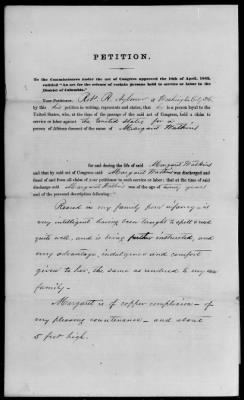 PETITION.
To the Commissioners under the act of Congress approved the 16th of April, 1862,
entitled "An act for the release of certain persons held to service or labor in the
District of Columbia."
Your Petitioner, Robt. R. of Washington City D.C.
by this his petition in writing, represents and states, that he is a person loyal to the
United States, who, at the time of the passage of the said act of Congress, held a claim to
service or labor against the United States for a
person of African descent of the name of Margaret Watkins
for and during the life of said Margaret Watkins
and that by said act of Congress said Margaret Watkins was discharged and
freed of and from all claim of your petitioner to such service or labor; that at the time of said
discharge said Margaret Watkins was of the age of years
and of the personal description following:
Raised in my family from infancy is
very intelligent having been taught to spell & read
quite well, and is being further instructed, and
every advantage, indulgence and comfort
given to her, the same as rendered to my own
family.
Margaret is of copper complexion - of
very pleasing countenance - and about
5 feet high.